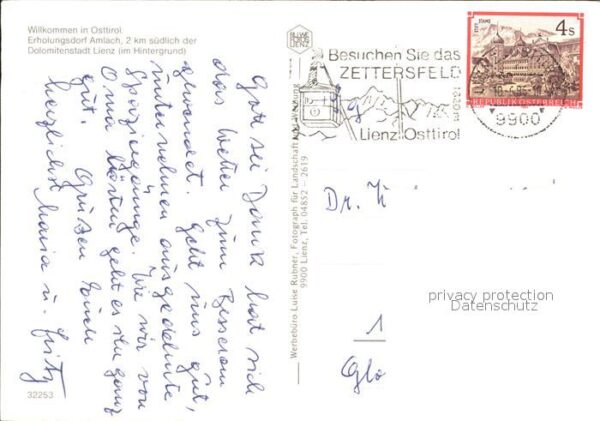 Willkommen in Osttirol
Erholungsdorf Amlach, 2 km südlich der
Dolomitenstadt Lienz (im Hintergrund)
Gott sei Dank hat sich
das Wetter zum Besseren
gewendet. Geht uns gut,
unternehmen ausgedehnte
Spaziergänge. Wie wir von
Oma hörten geht es ihr ganz
gut. Grüßen Euch
herzlichst Maria u. Fritz
32253
Werbebüro Luise Rubner, Fotograph für Landschaft und Werbung
9900 Lienz, Tel. 04852 - 2619
BLUMEN
LIENZ
Besuchen Sie das
ZETTERSFELD
1820 m
Lienz/Osttirol
STAMS
4 S
REPUBLIK ÖSTERREICH
9900
Dr.
privacy protection
Datenschutz
1
Glo